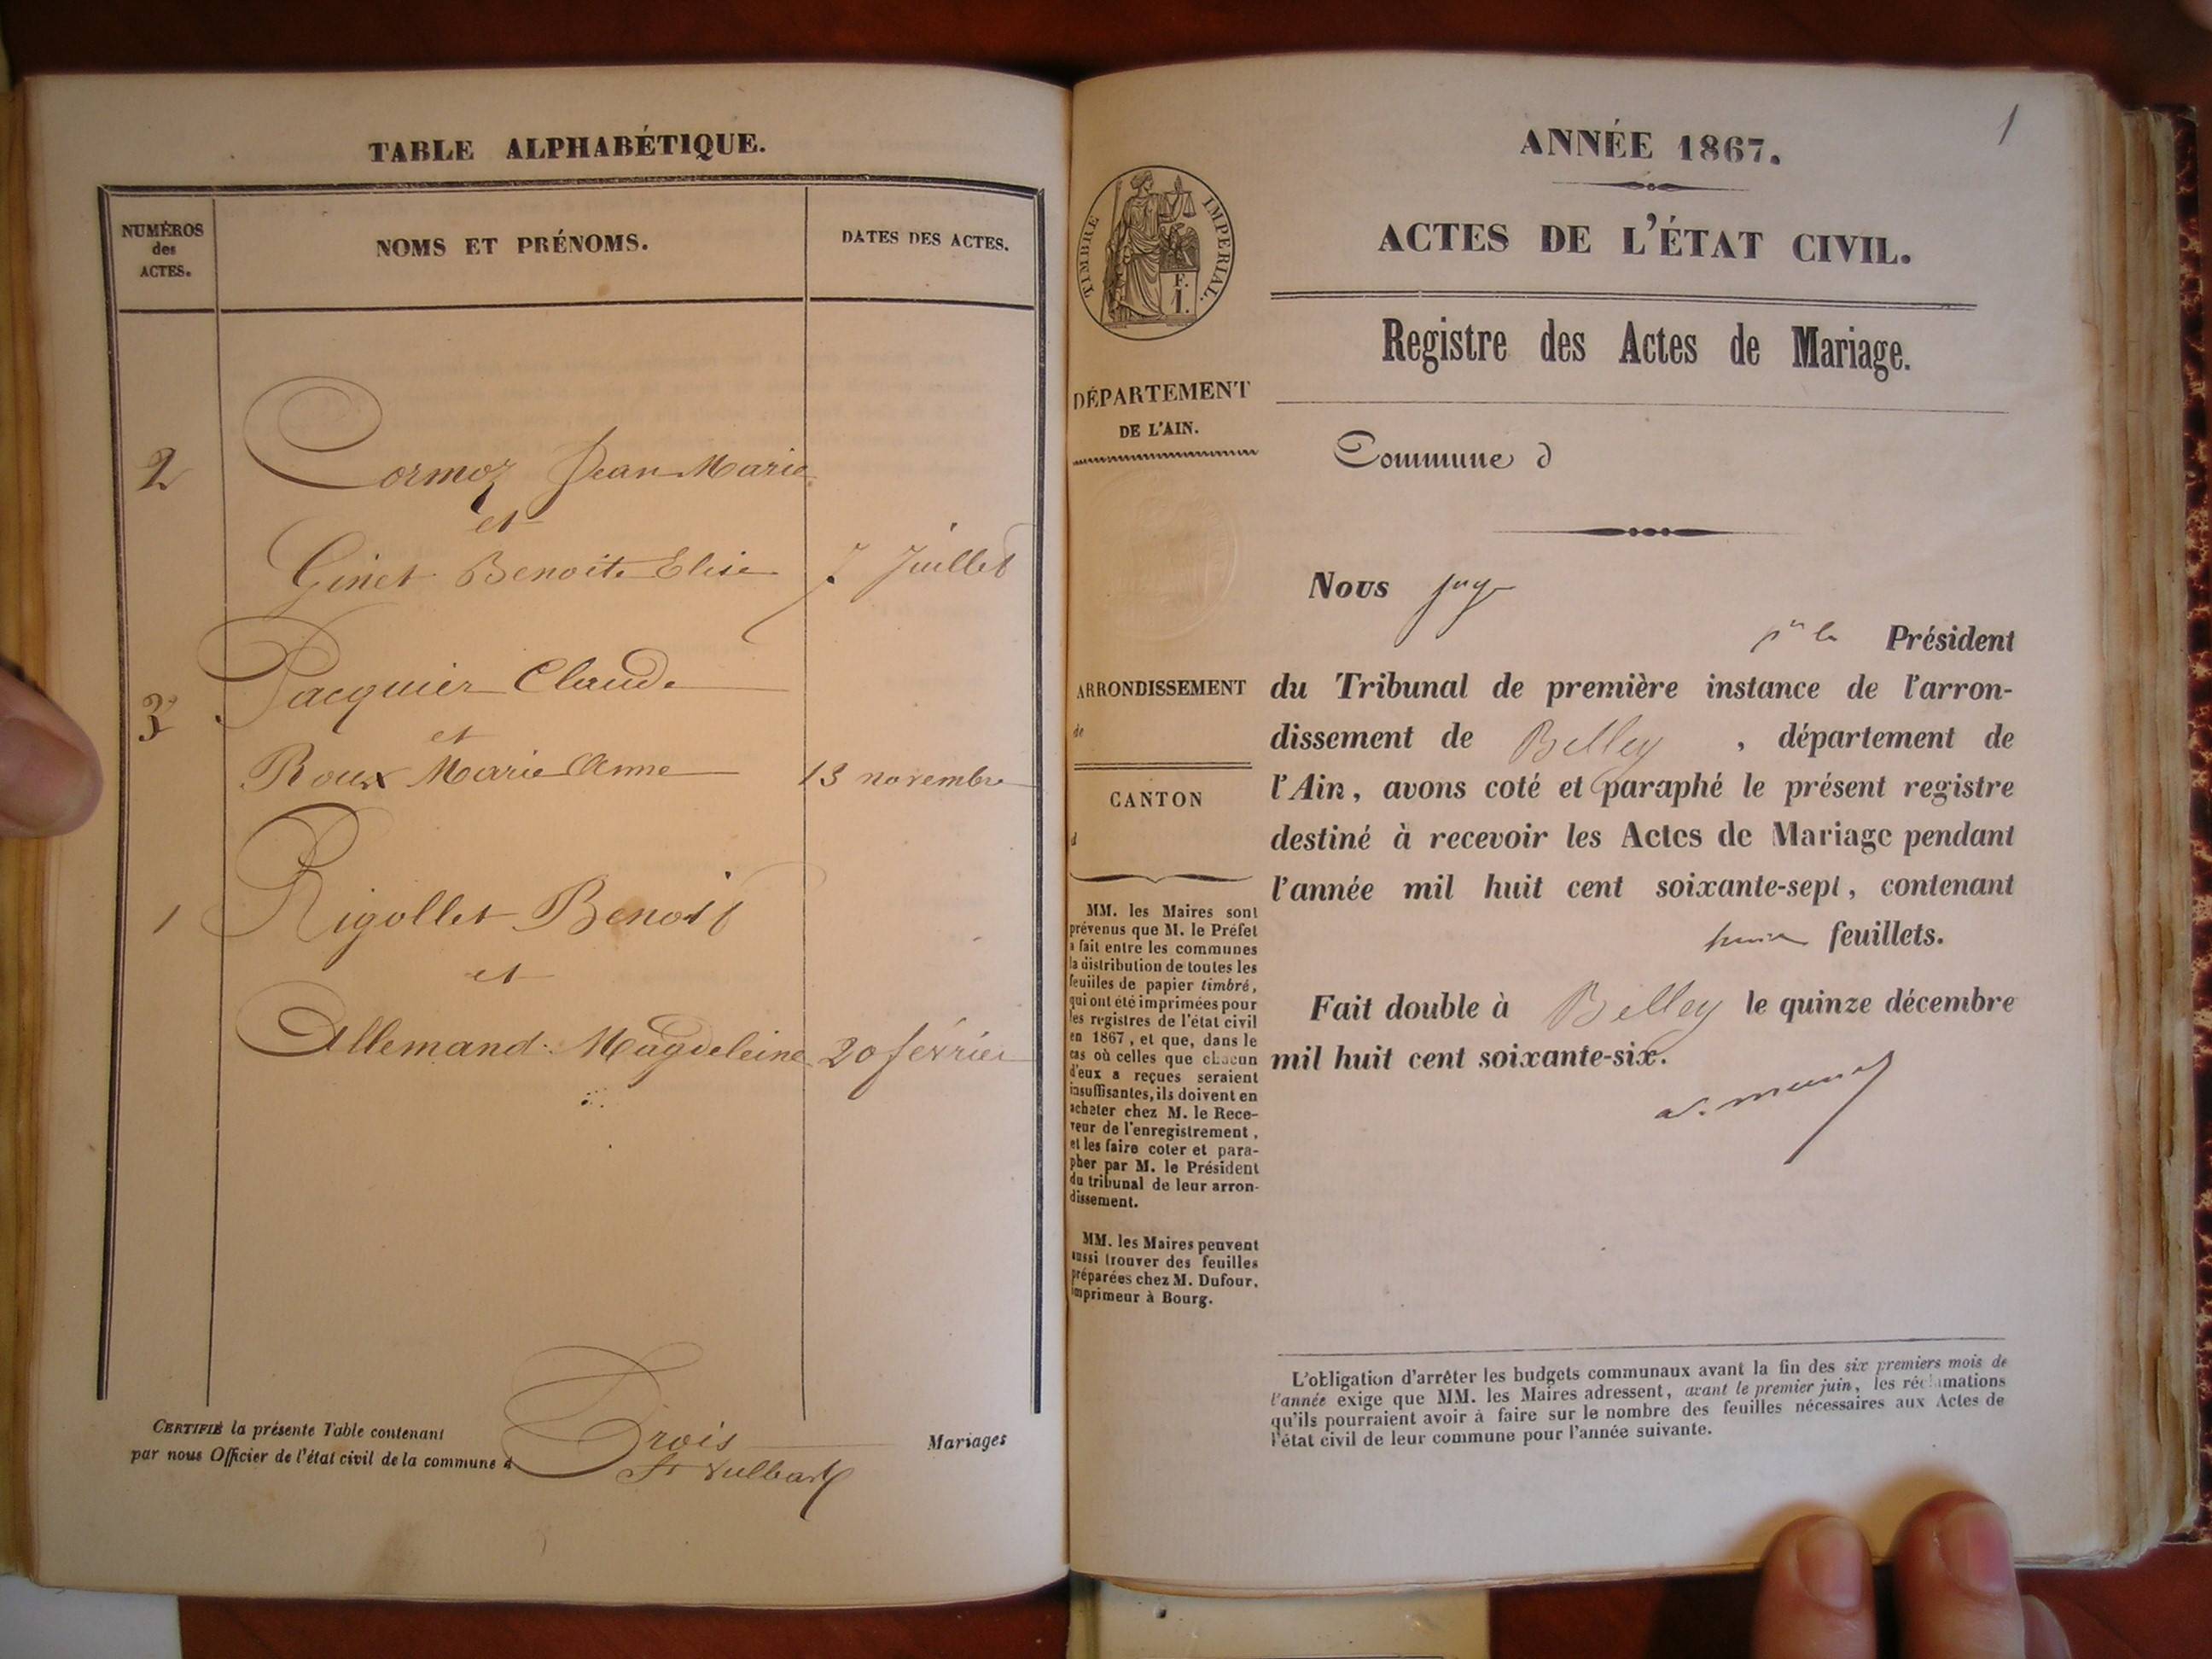 TABLE ALPHABÉTIQUE.
NUMÉROS
des
ACTES.
NOMS ET PRÉNOMS.
DATES DES ACTES.
2
Cormoz Jean Marie
et
Ginet Benoite Elise 7 Juillet
3 Jacquier Claude
et
Roux Marie Anne 13 novembre
1 Rigollet Benoit
et
Allemand Magdeleine 20 février
CERTIFIÉ la présente Table contenant Trois Mariages
par nous Officier de l'état civil de la commune d St Vulbas
1
ANNÉE 1867.
ACTES DE L'ÉTAT CIVIL.
Registre des Actes de Mariage.
Commune d
Nous juge
pr le Président
du Tribunal de première instance de l'arron-
dissement de Belley, département de
l'Ain, avons coté et paraphé le présent registre
destiné à recevoir les Actes de Mariage pendant
l'année mil huit cent soixante-sept, contenant
feuillets.
Fait double à Belley le quinze décembre
mil huit cent soixante-six.
L'obligation d'arrêter les budgets communaux avant la fin des six premiers mois de
l'année exige que MM. les Maires adressent, avant le premier juin, les réclamations
qu'ils pourraient avoir à faire sur le nombre des feuilles nécessaires aux Actes de
l'état civil de leur commune pour l'année suivante.
TIMBRE IMPERIAL.
F.
1.
DÉPARTEMENT
DE L'AIN.
ARRONDISSEMENT
de
CANTON
d
MM. les Maires sont
prévenus que M. le Préfet
a fait entre les communes
la distribution de toutes les
feuilles de papier timbré,
qui ont été imprimées pour
les registres de l'état civil
en 1867, et que, dans le
cas où celles que chacun
d'eux a reçues seraient
insuffisantes, ils doivent en
acheter chez M. le Rece-
veur de l'enregistrement,
et les faire coter et para-
pher par M. le Président
du tribunal de leur arron-
dissement.
MM. les Maires peuvent
aussi trouver des feuilles
préparées chez M. Dufour,
imprimeur à Bourg.